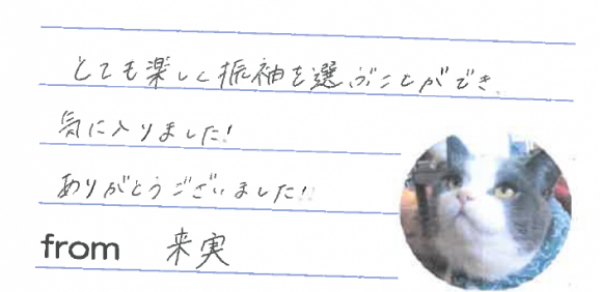 とても楽しく振袖を選ぶことができ、
気に入りました!
ありがとうございました!!
from 来実